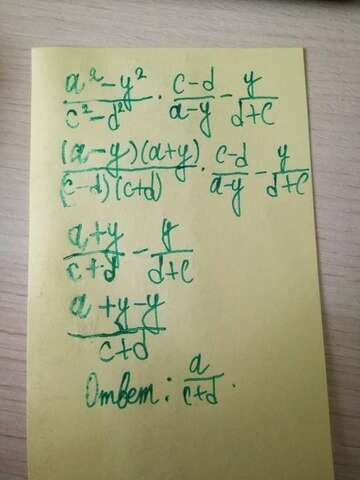 (a² - y²)/(c² - d²) · (c-d)/(a-y) - y/(d+c)
((a-y)(a+y))/((c-d)(c+d)) · (c-d)/(a-y) - y/(d+c)
(a+y)/(c+d) - y/(d+c)
(a+y-y)/(c+d)
Ответ: a/(c+d).